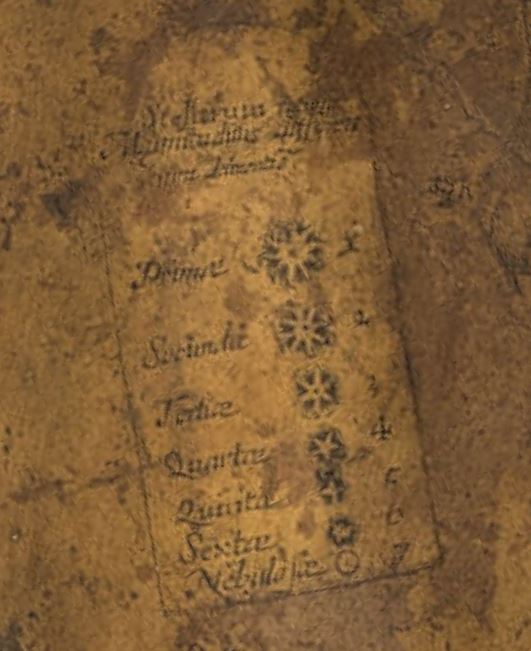 Stellarum
Magnitudinis
Primæ 1
Secundæ 2
Tertiæ 3
Quartæ 4
Quintæ 5
Sextæ 6
Nebulosæ 7